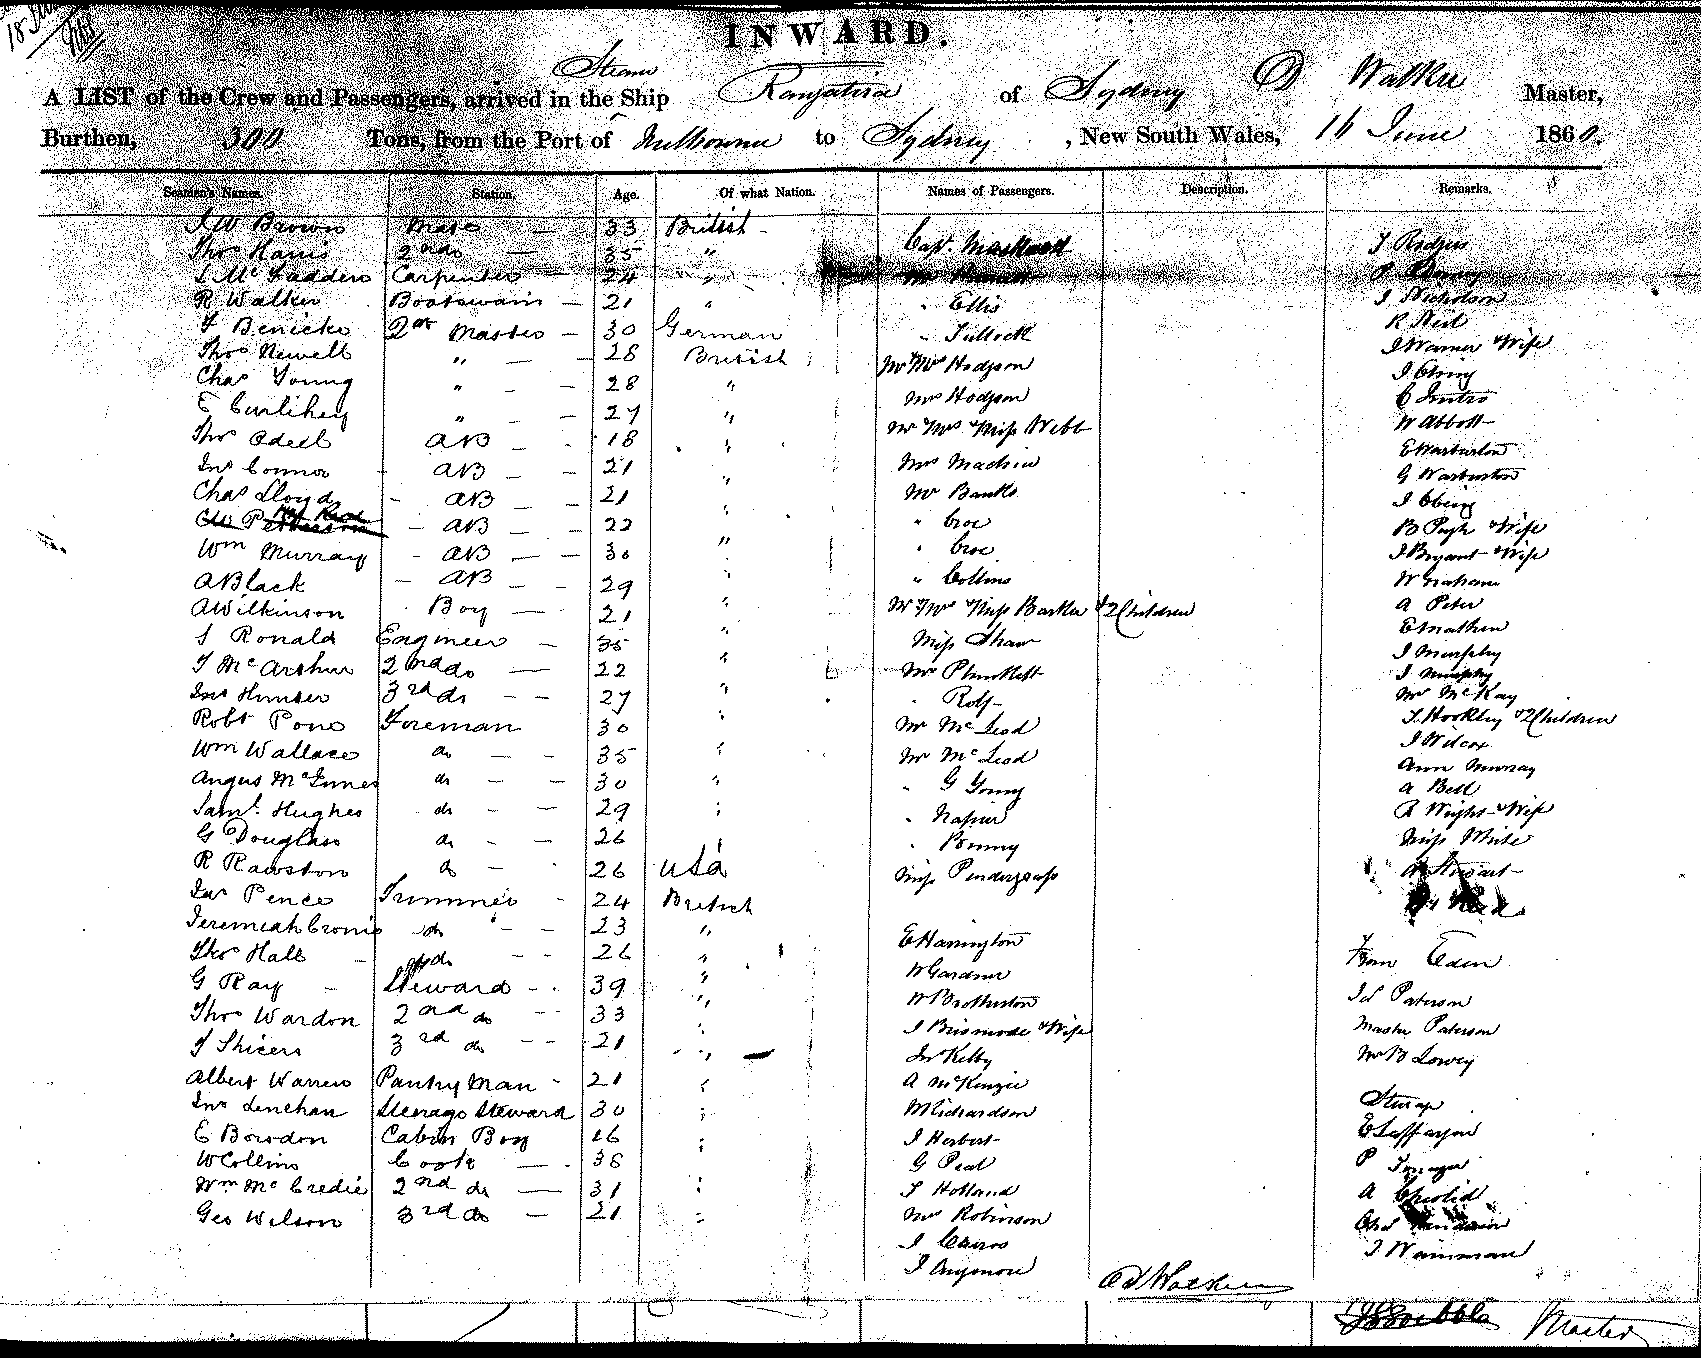 18 June
INWARD.
Steam
A LIST of the Crew and Passengers, arrived in the Ship Rangatira of Sydney D Walker Master,
Burthen, 300 Tons, from the Port of Melbourne to Sydney, New South Wales, 16 June 1860.
Seamen's Names. Station. Age. Of what Nation. Names of Passengers. Description. Remarks.
J W Brown Mate 33 British
Thos Harris 2nd do 35 " Capt. J Rodgers
L McFadden Carpenter 24 " Mr P
R Walker Boatswain 21 " " Ellis J Nicholson
F Benicke 2nr Master 30 German " Tullock R Neil
Thos Newell " 28 British Mr Mrs Hodgson J Warner & Wife
Chas Young " 28 " Mrs Hodgson J
E Curlihey " 27 " Mr Mrs & Miss Webb C
Thos Odell AB 18 " Mrs Machin W Abbott
Jno Connor AB 21 " Mr Banks E Warburton
Chas Lloyd AB 21 " " Croe G Warburton
CW Peterson AB 22 " " Croe J
Wm Murray AB 30 " " Collins B Pugh & Wife
A Black AB 29 " Mr Mrs Miss Barker & 2 Children J Bryant & Wife
A Wilkinson Boy 21 " Miss Shaw W Graham
J Ronald Engineer 35 " Mr Plunkett A Peter
J McArthur 2nd do 22 " " Rolf E Mathew
Jno Hunter 3rd do 27 " Mr McLeod J Murphy
Robt Pone Foreman 30 " Mr McLeod J Murphy
Wm Wallace do 35 " " G Young Mr McKay
Angus McInnes do 30 " " Napier J Hockley & 2 Children
Saml. Hughes do 29 " " Benny J Wilcox
G Douglass do 26 " Miss Pendergrass Ann Murray
R Rawston do 26 USA A Bell
Jas Pence Trimmer 24 British R Wight & Wife
Jeremiah Cronin do 23 " E Harrington Miss White
Thos Hall do 26 " W Gardner A Stewart
G Ray Steward 39 " W Brotherton Reid
Thos Wardon 2nd do 33 " J Brismode & Wife From Eden
J Shicers 3rd do 21 " Jno Kelby J S Paterson
Albert Warren Pantry Man 21 " A McKenzie Master Paterson
Jno Lenehan Steerage Steward 30 " M Richardson Mr B Lowey
E Bowdon Cabin Boy 16 " J Herbert Steerage
W Collins Cook 38 " G Peat
Wm McCredie 2nd do 31 " J Holland P
Geo Wilson 3rd do 21 " Mrs Robinson A
J Cairos Chas
J J Wainman
D Walker
Master